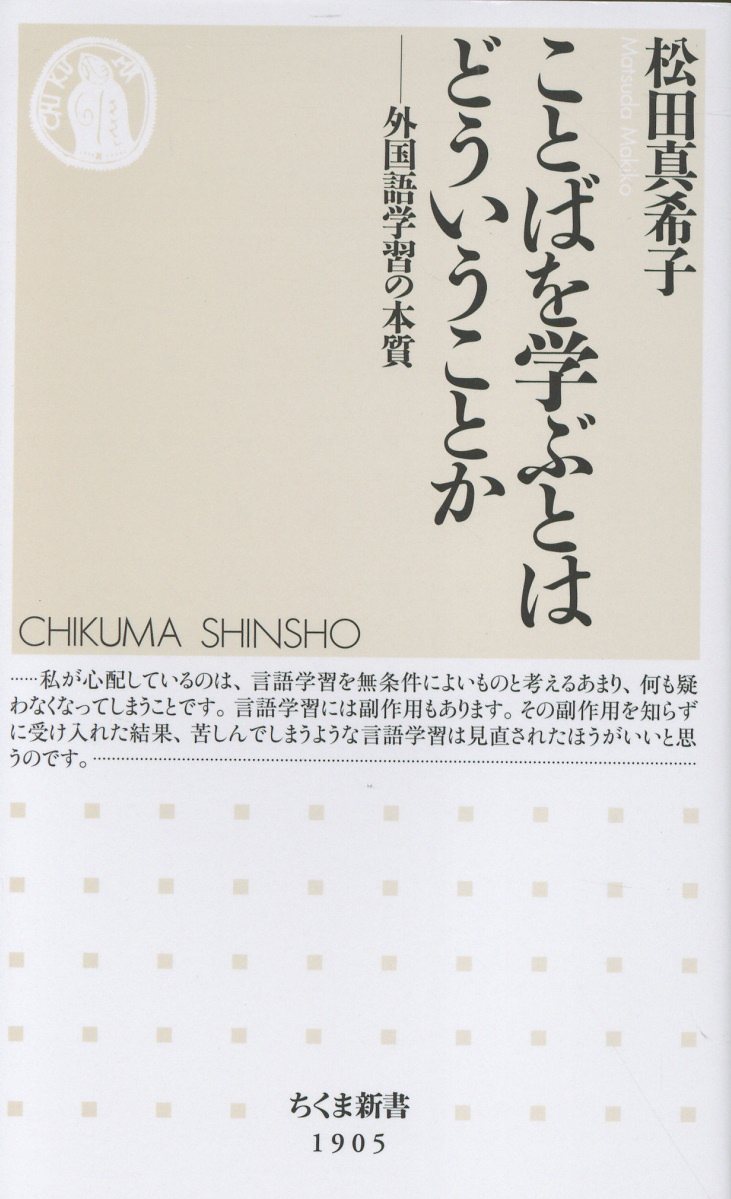 CHIKUMA
松田真希子
Matsuda Makiko
ことばを学ぶとは
どういうことか
──外国語学習の本質
CHIKUMA SHINSHO
……私が心配しているのは、言語学習を無条件によいものと考えるあまり、何も疑
わなくなってしまうことです。言語学習には副作用もあります。その副作用を知らず
に受け入れた結果、苦しんでしまうような言語学習は見直されたほうがいいと思
うのです。……
ちくま新書
1905